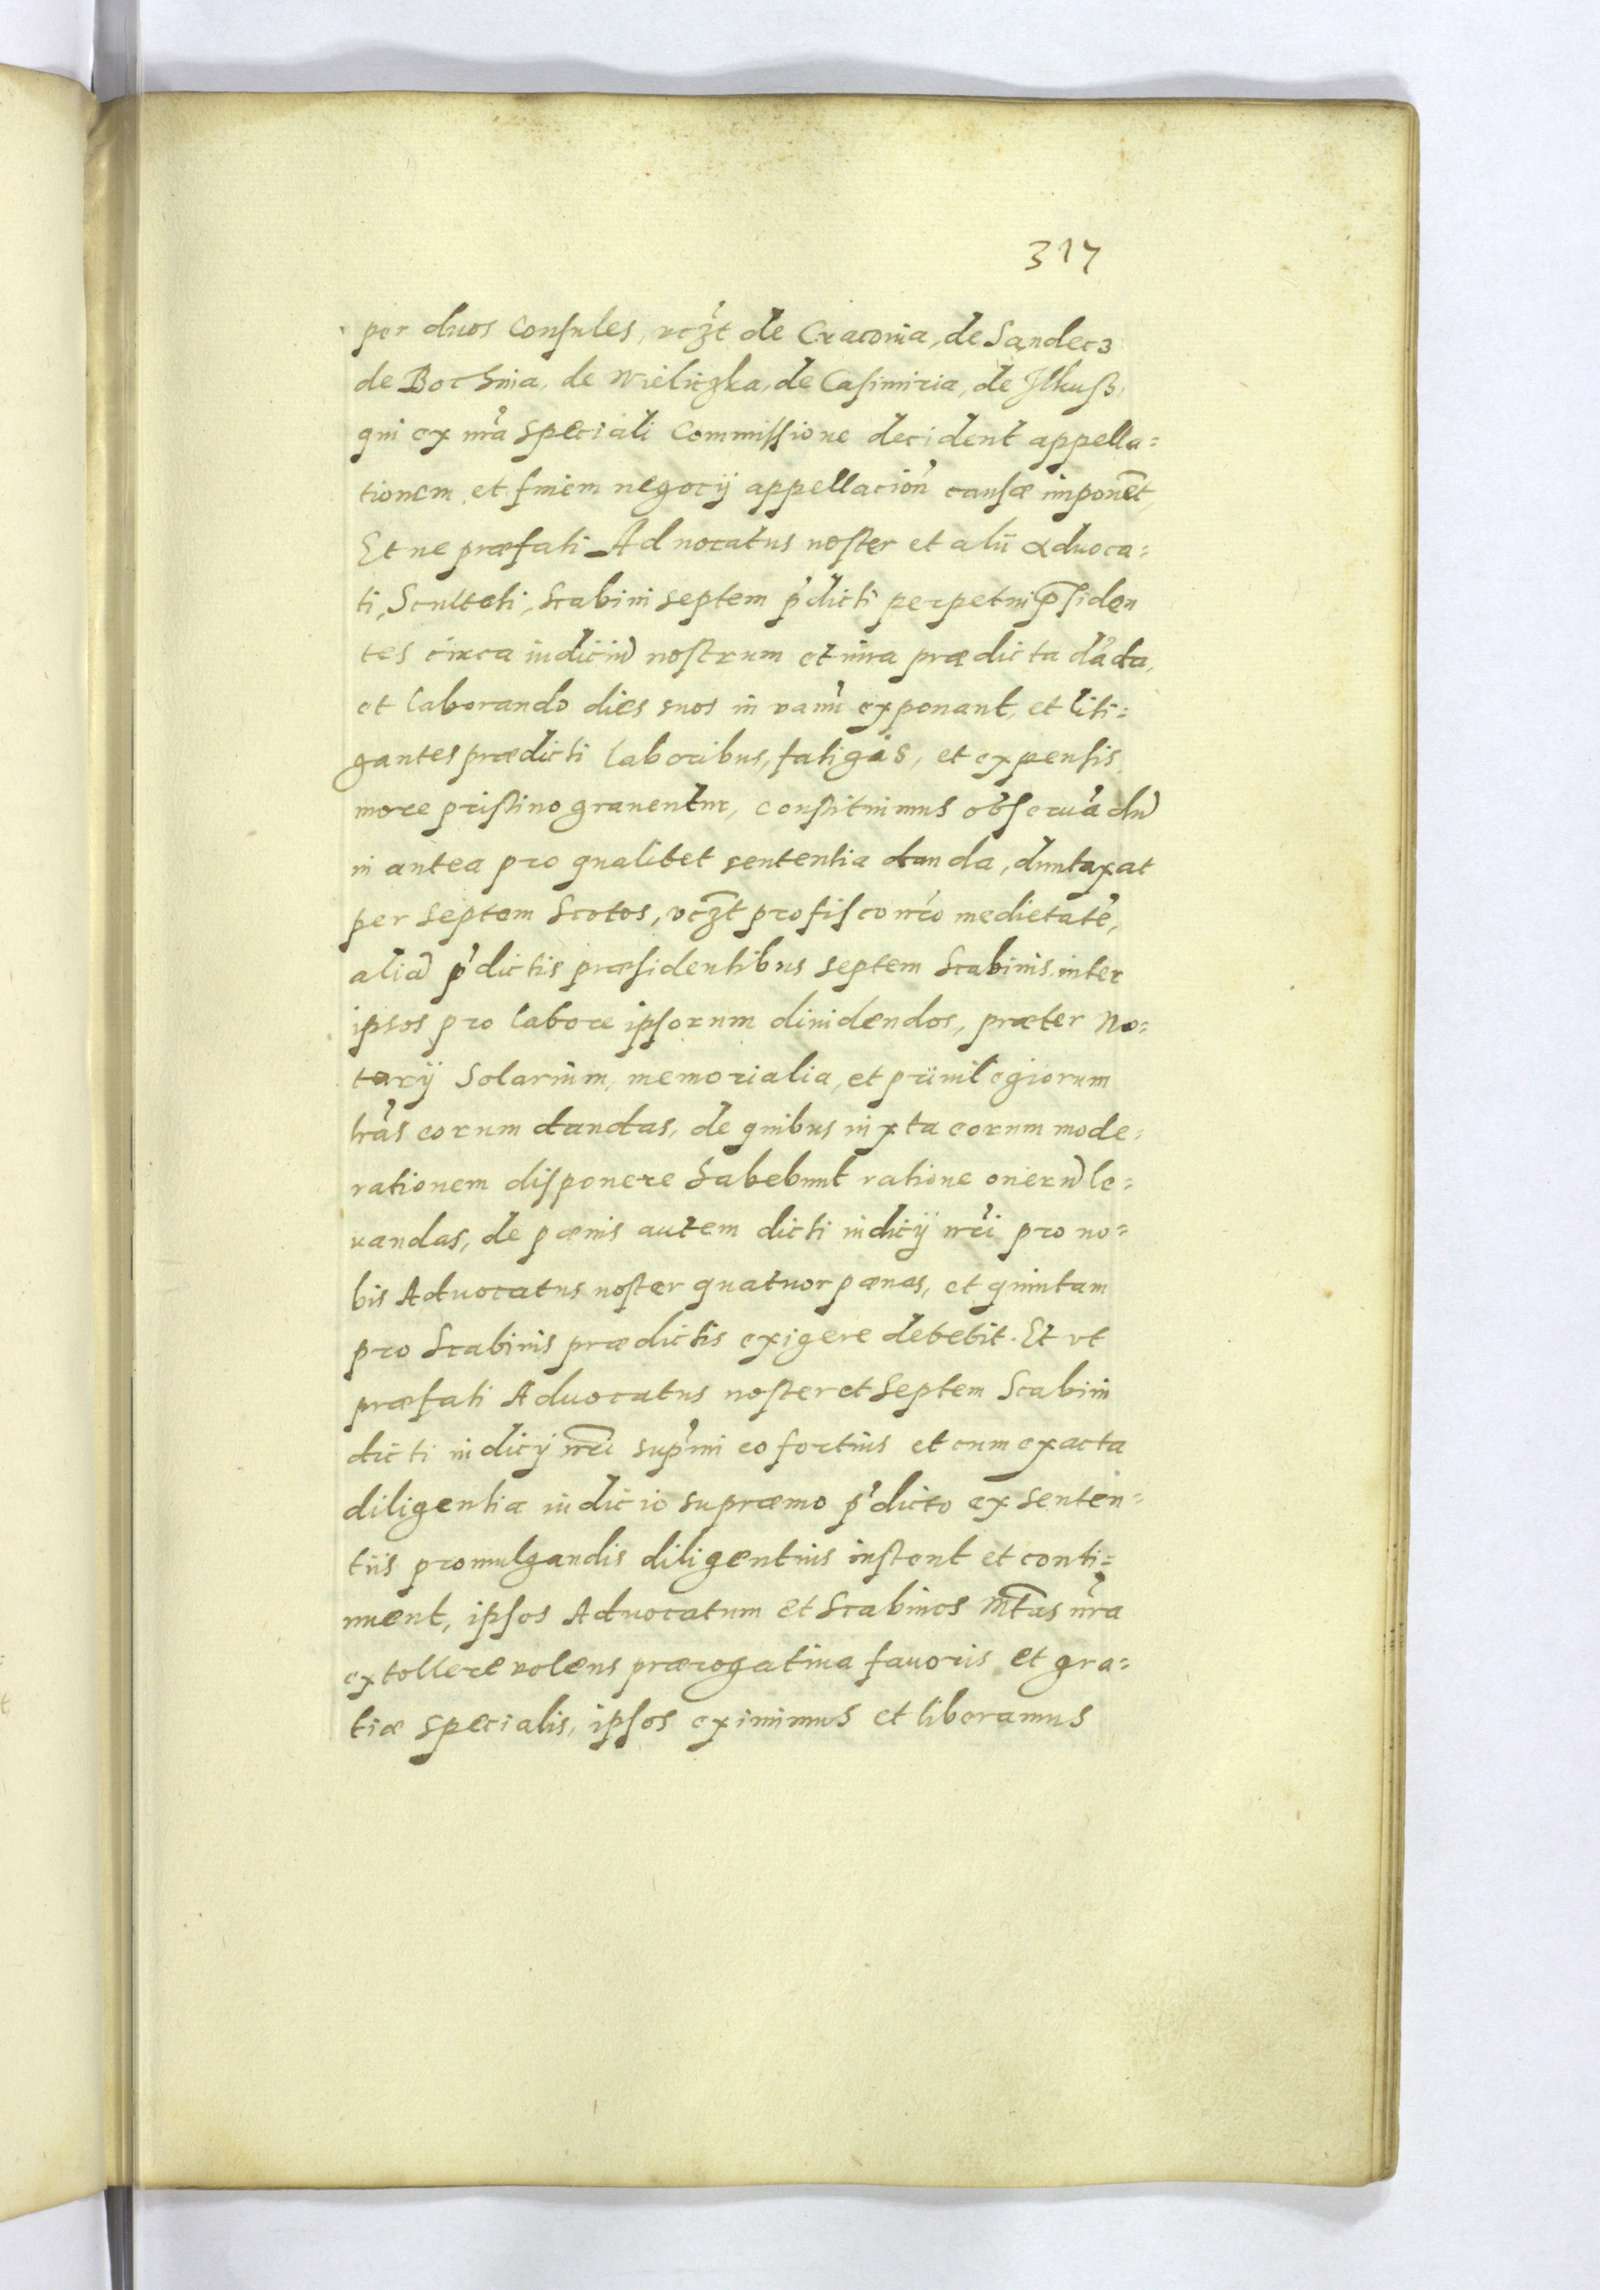 317
per duos Consules, vcz̃t de Cracovia, de Sandecz
de Bochnia, de Wieliczka, de Casimiria, de Ilkusß,
qui ex nr̃a speciali Commissione decident appella=
tionem et finem negocij appellacion̄ causæ imponẽt,
Et ne præfati Aduocatus noster et alii aduoca=
ti, Sculteti, Scabini septem p̄dicti perpetui p̄siden
tes circa iudiciũ nostrum et iura prædicta dãda,
et laborando dies suos in vanũ exponant, et liti=
gantes prædicti laboribus, fatigis, et expensis
more pristino grauentur, constituimus obseruãdũ
in antea pro qualibet sententia danda, duntaxat
per septem Scotos, vcz̃t pro fisco nr̃o medietatẽ,
aliã p̄dictis præsidentibus septem Scabinis inter
ipsos pro labore ipsorum diuidendos, præter No=
tarij Solarium, memorialia, et priuilegiorum
lr̃as eorum dandas, de quibus iuxta eorum mode=
rationem disponere habebunt ratione onerũ le=
uandas, de pœnis autem dicti iudicij nr̃i pro no=
bis Aduocatus noster quatuor pœnas, et quintam
pro Scabinis prædictis exigere debebit. Et vt
præfati Aduocatus noster et Septem Scabini
dicti iudicij nr̃i sup̄mi eo fortius et cum exacta
diligentia iudicio supræmo p̄dicto ex senten=
tiis promulgandis diligentius instent et conti=
nuent, ipsos Aduocatum et Scabinos Mt̃as nr̃a
extollere volens prærogatiua fauoris et gra=
tiæ specialis, ipsos eximimus et liberamus